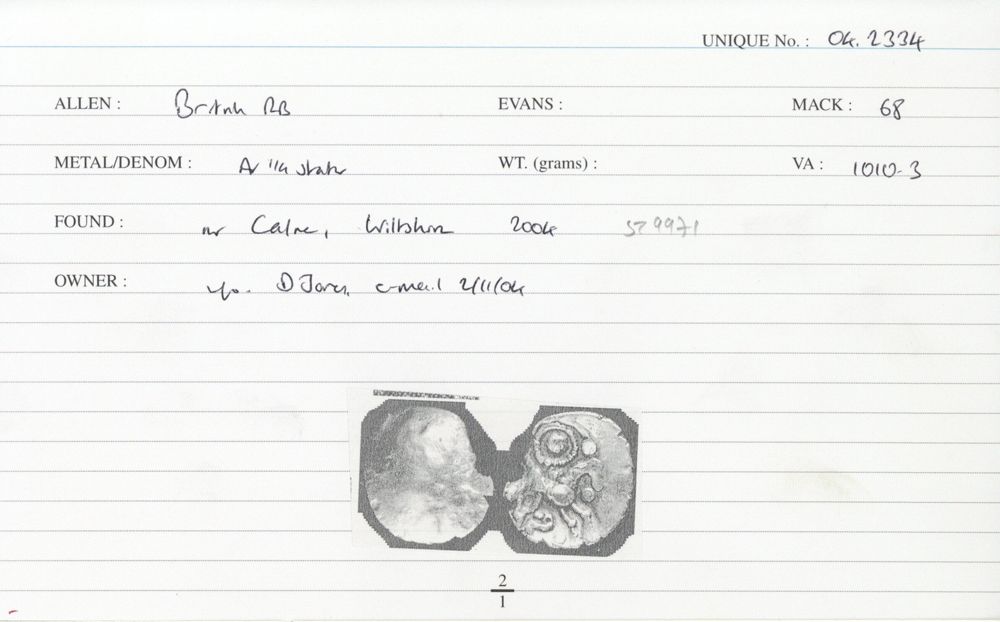 UNIQUE No. : 04.2334
ALLEN : British RB EVANS : MACK : 68
METAL/DENOM : AV 1/4 stater WT. (grams) : VA : 1010-3
FOUND : nr Calne, Wiltshire 2004 SZ 9971
OWNER : D Jones, e-mail 2/11/04
2
1